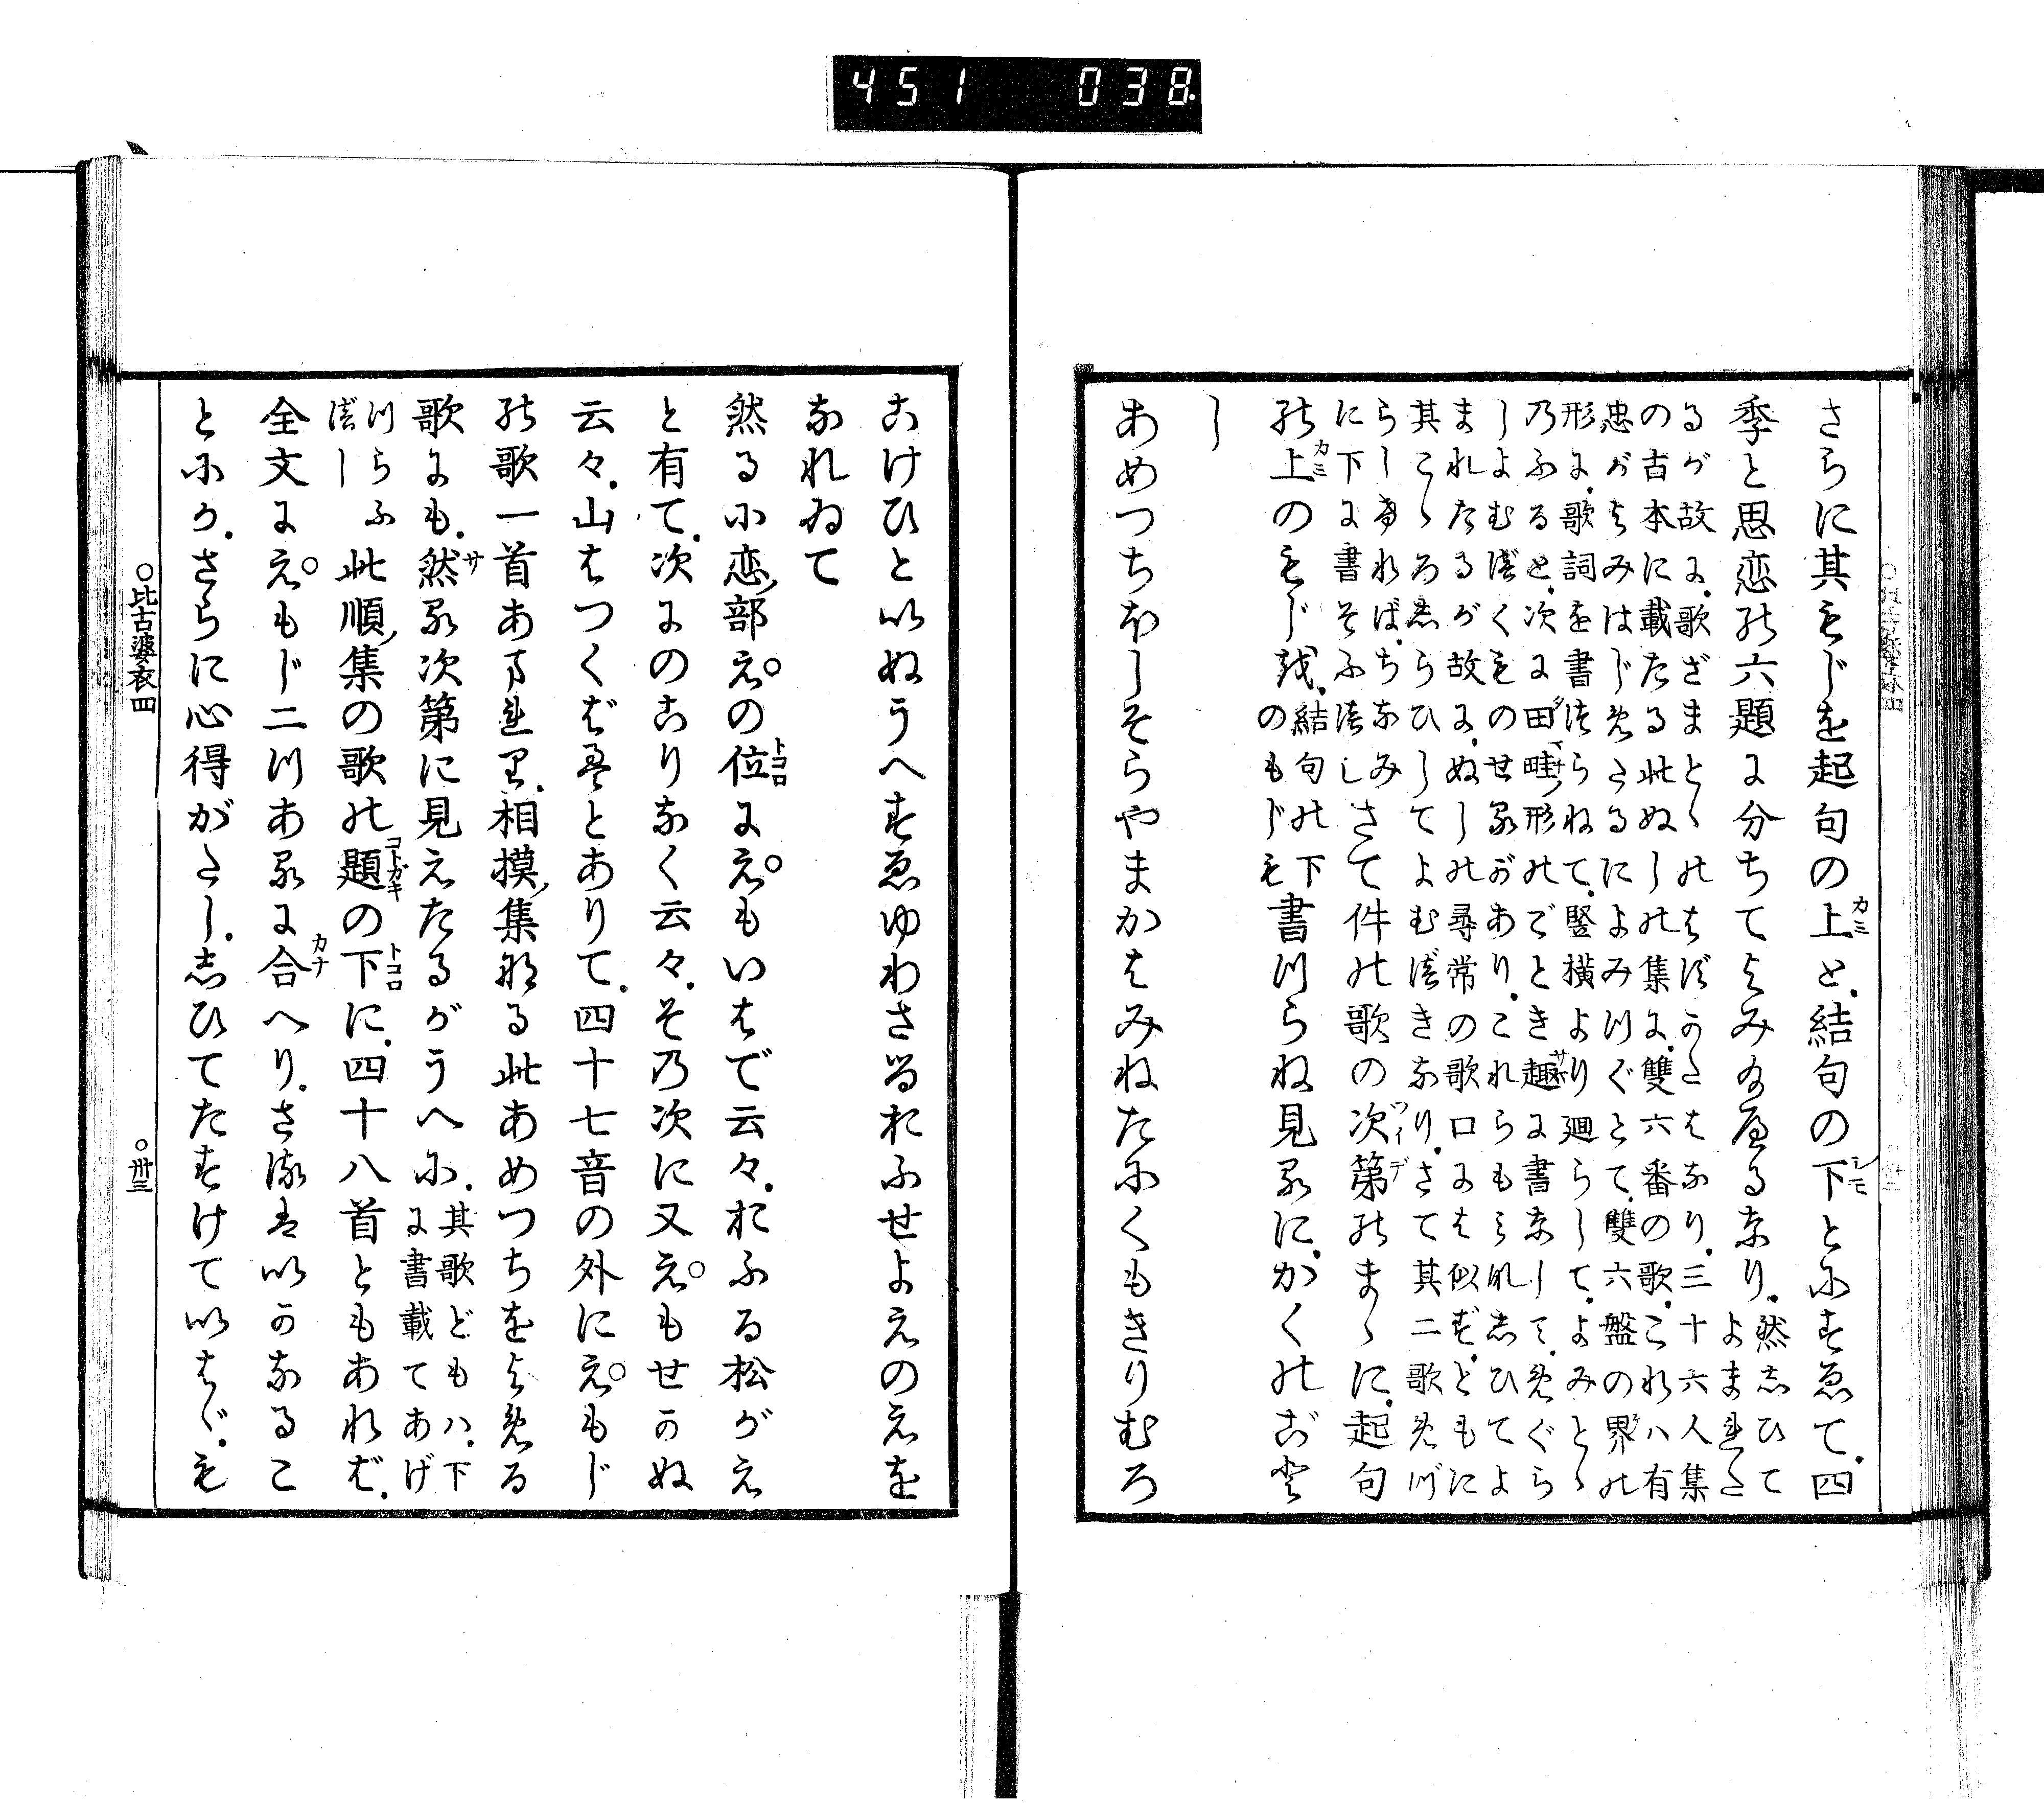 451 038
さらに其もじを起句の上と、結句の下とにすゑて、四
季と思恋の六題に分ちてよみためるなり、
然しひて
よまれた
るが故に、歌ざまとゝのはずかたはなり、三十六人集
の古本に載たる此ぬしの集に、雙六番の歌、これハ有
忠がよみはじめたるによみつぐとて、雙六盤の界の
形に、歌詞を書つらねて、竪横より廻らして、よみとゝ
のふると、次に田畦形のごとき趣に書なして、めぐら
しよむべくものせるがあり、これらもみなしひてよ
まれたるが故に、ぬしの尋常の歌口には似ず、ともに
其こゝろしらひしてよむべきなり、さて其二歌めづ
らしければ、ちなみ
に下に書そふべし
さて件の歌の次第のまゝに、起句
の上のもじを、
結句の下
のもじも
書つらね見るに、かくのごと
し
あめつちほしそらやまかはみねたにくもきりむろ
こけひといぬうへすゑゆわさるおふせよえのえを
なれゐて
然るに恋ノ部えの位にえもいはで云々、おふる松がえ
と有て、次にのこりなく云々、その次に又えもせかぬ
云々、山はつくばねとありて、四十七音の外にえもじ
の歌一首あまれり、相摸ノ集なる此あめつちをよめる
歌にも、然る次第に見えたるがうへに、
其歌どもハ、下
に書載てあげ
つらふ
べし
此順ノ集の歌の題の下に、四十八首ともあれば、
全文にえもじ二つあるに合へり、さるはいかなるこ
とにか、さらに心得がたし、しひてたすけていはゞ、も
○比古婆衣四
○卅三